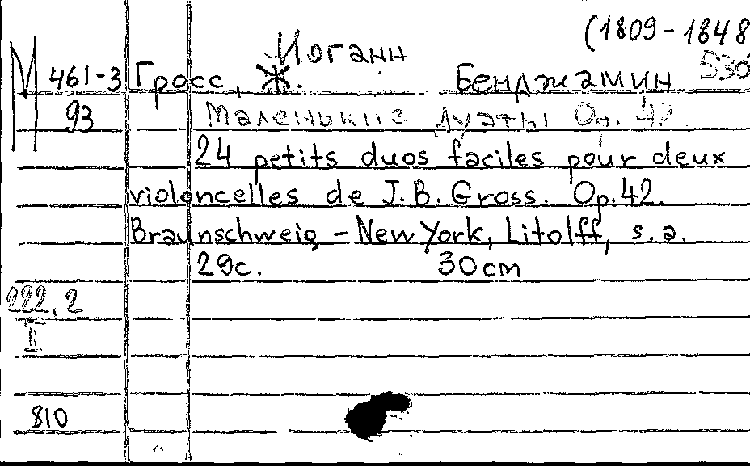 (1809-1848
Иоганн
М 461-3 Гросс, Ж. Бенджамин 530
93 Маленькие дуэты Оп. 42.
24 petits duos faciles pour deux
violoncelles de J.B. Gross. Op.42.
Braunschweig - New York, Litolff, s.a.
29c. 30cm
222.2
II
810